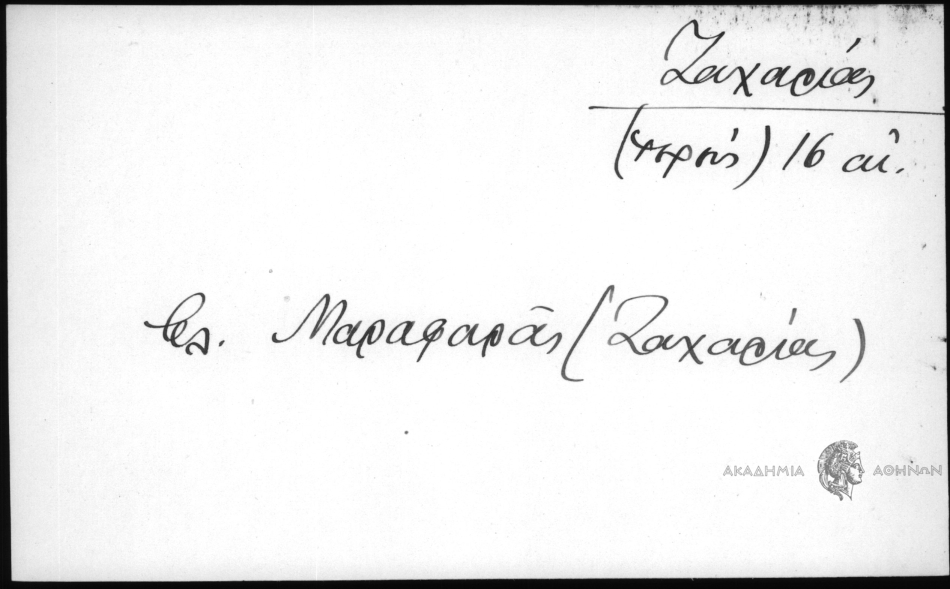 Ζαχαρίας
(ἱερεύς) 16 αἰ.
βλ. Μαραφαρᾶς (Ζαχαρίας)
ΑΚΑΔΗΜΙΑ ΑΘΗΝΩΝ